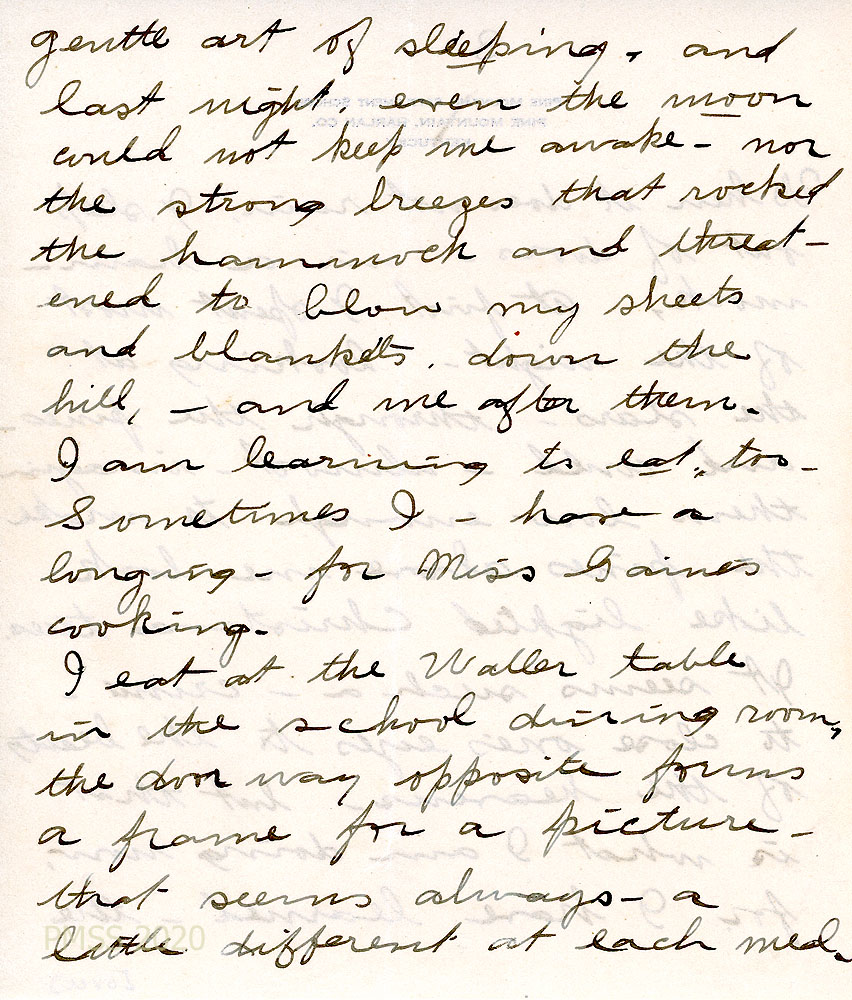 gentle art of sleeping, and
last night, even the moon
could not keep me awake - nor
the strong breezes that rocked
the hammock and threat-
ened to blow my sheets
and blankets, down the
hill, - and me after them.
I am learning to eat, too -
Sometimes I - have a
longing - for Miss Gaines
cooking.
I eat at the Waller table
in the school dining room,
the door way opposite forms
a frame for a picture -
that seems always - a
little different at each meal.
PMSS 2020